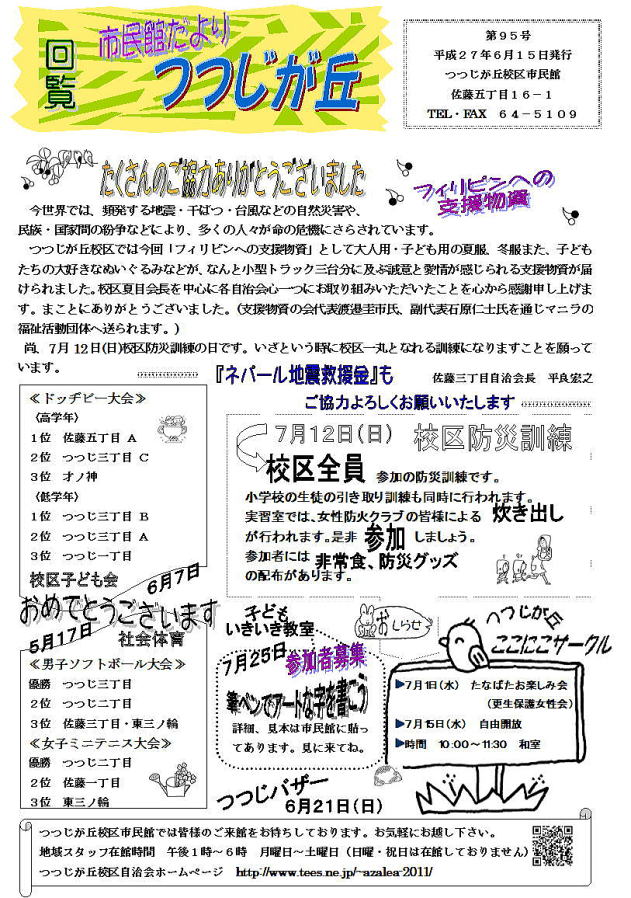 回覧
市民館だより
つつじが丘
第９５号
平成２７年６月１５日発行
つつじが丘校区市民館
佐藤五丁目１６－１
TEL・FAX　６４－５１０９
たくさんのご協力ありがとうございました
フィリピンへの
支援物資
今世界では、頻発する地震・干ばつ・台風などの自然災害や、
民族・国家間の紛争などにより、多くの人々が命の危機にさらされています。
つつじが丘校区では今回「フィリピンへの支援物資」として大人用・子ども用の夏服、冬服また、子ども
たちの大好きなぬいぐるみなどが、なんと小型トラック三台分に及ぶ誠意と愛情が感じられる支援物資が届
けられました。校区夏目会長を中心に各自治会心一つにお取り組みいただいたことを心から感謝申し上げま
す。まことにありがとうございました。（支援物資の会代表渡邉圭市民、副代表石原仁士氏を通じマニラの
福祉活動団体へ送られます。）
尚、7月12日(日)校区防災訓練の日です。いざという時に校区一丸となれる訓練になりますことを願って
います。
佐藤三丁目自治会長　平良宏之
『ネパール地震救援金』も
ご協力よろしくお願いいたします
≪ドッヂビー大会≫
〈高学年〉
１位　佐藤五丁目 A
２位　つつじ三丁目 C
３位　オノ神
〈低学年〉
１位　つつじ三丁目 B
２位　つつじ三丁目 A
３位　つつじ一丁目
校区子ども会
6月7日
おめでとうございます
5月17日
社会体育
≪男子ソフトボール大会≫
優勝　つつじ三丁目
２位　つつじ二丁目
３位　佐藤三丁目・東三ノ輪
≪女子ミニテニス大会≫
優勝　つつじ二丁目
２位　佐藤一丁目
３位　東三ノ輪
7月12日(日)　校区防災訓練
校区全員 参加の防災訓練です。
小学校の生徒の引き取り訓練も同時に行われます。
実習室では、女性防火クラブの皆様による 炊き出し
が行われます。是非 参加 しましょう。
参加者には 非常食、防災グッズ
の配布があります。
子ども
いきいき教室
おしらせ
7月25日 参加者募集
筆ペンでアートな字を書こう
詳細、見本は市民館に貼っ
てあります。見に来てね。
つつじバザー
6月21日(日)
つつじが丘
ここにこサークル
▶7月1日(水)　たなばたお楽しみ会
（更生保護女性会）
▶7月15日(水)　自由開放
▶時間　10:00～11:30　和室
つつじが丘校区市民館では皆様のご来館をお待ちしております。お気軽にお越し下さい。
地域スタッフ在館時間　午後１時～６時　月曜日～土曜日（日曜・祝日は在館しておりません）
つつじが丘校区自治会ホームページ　http://www.tees.ne.jp/~azalea-2011/